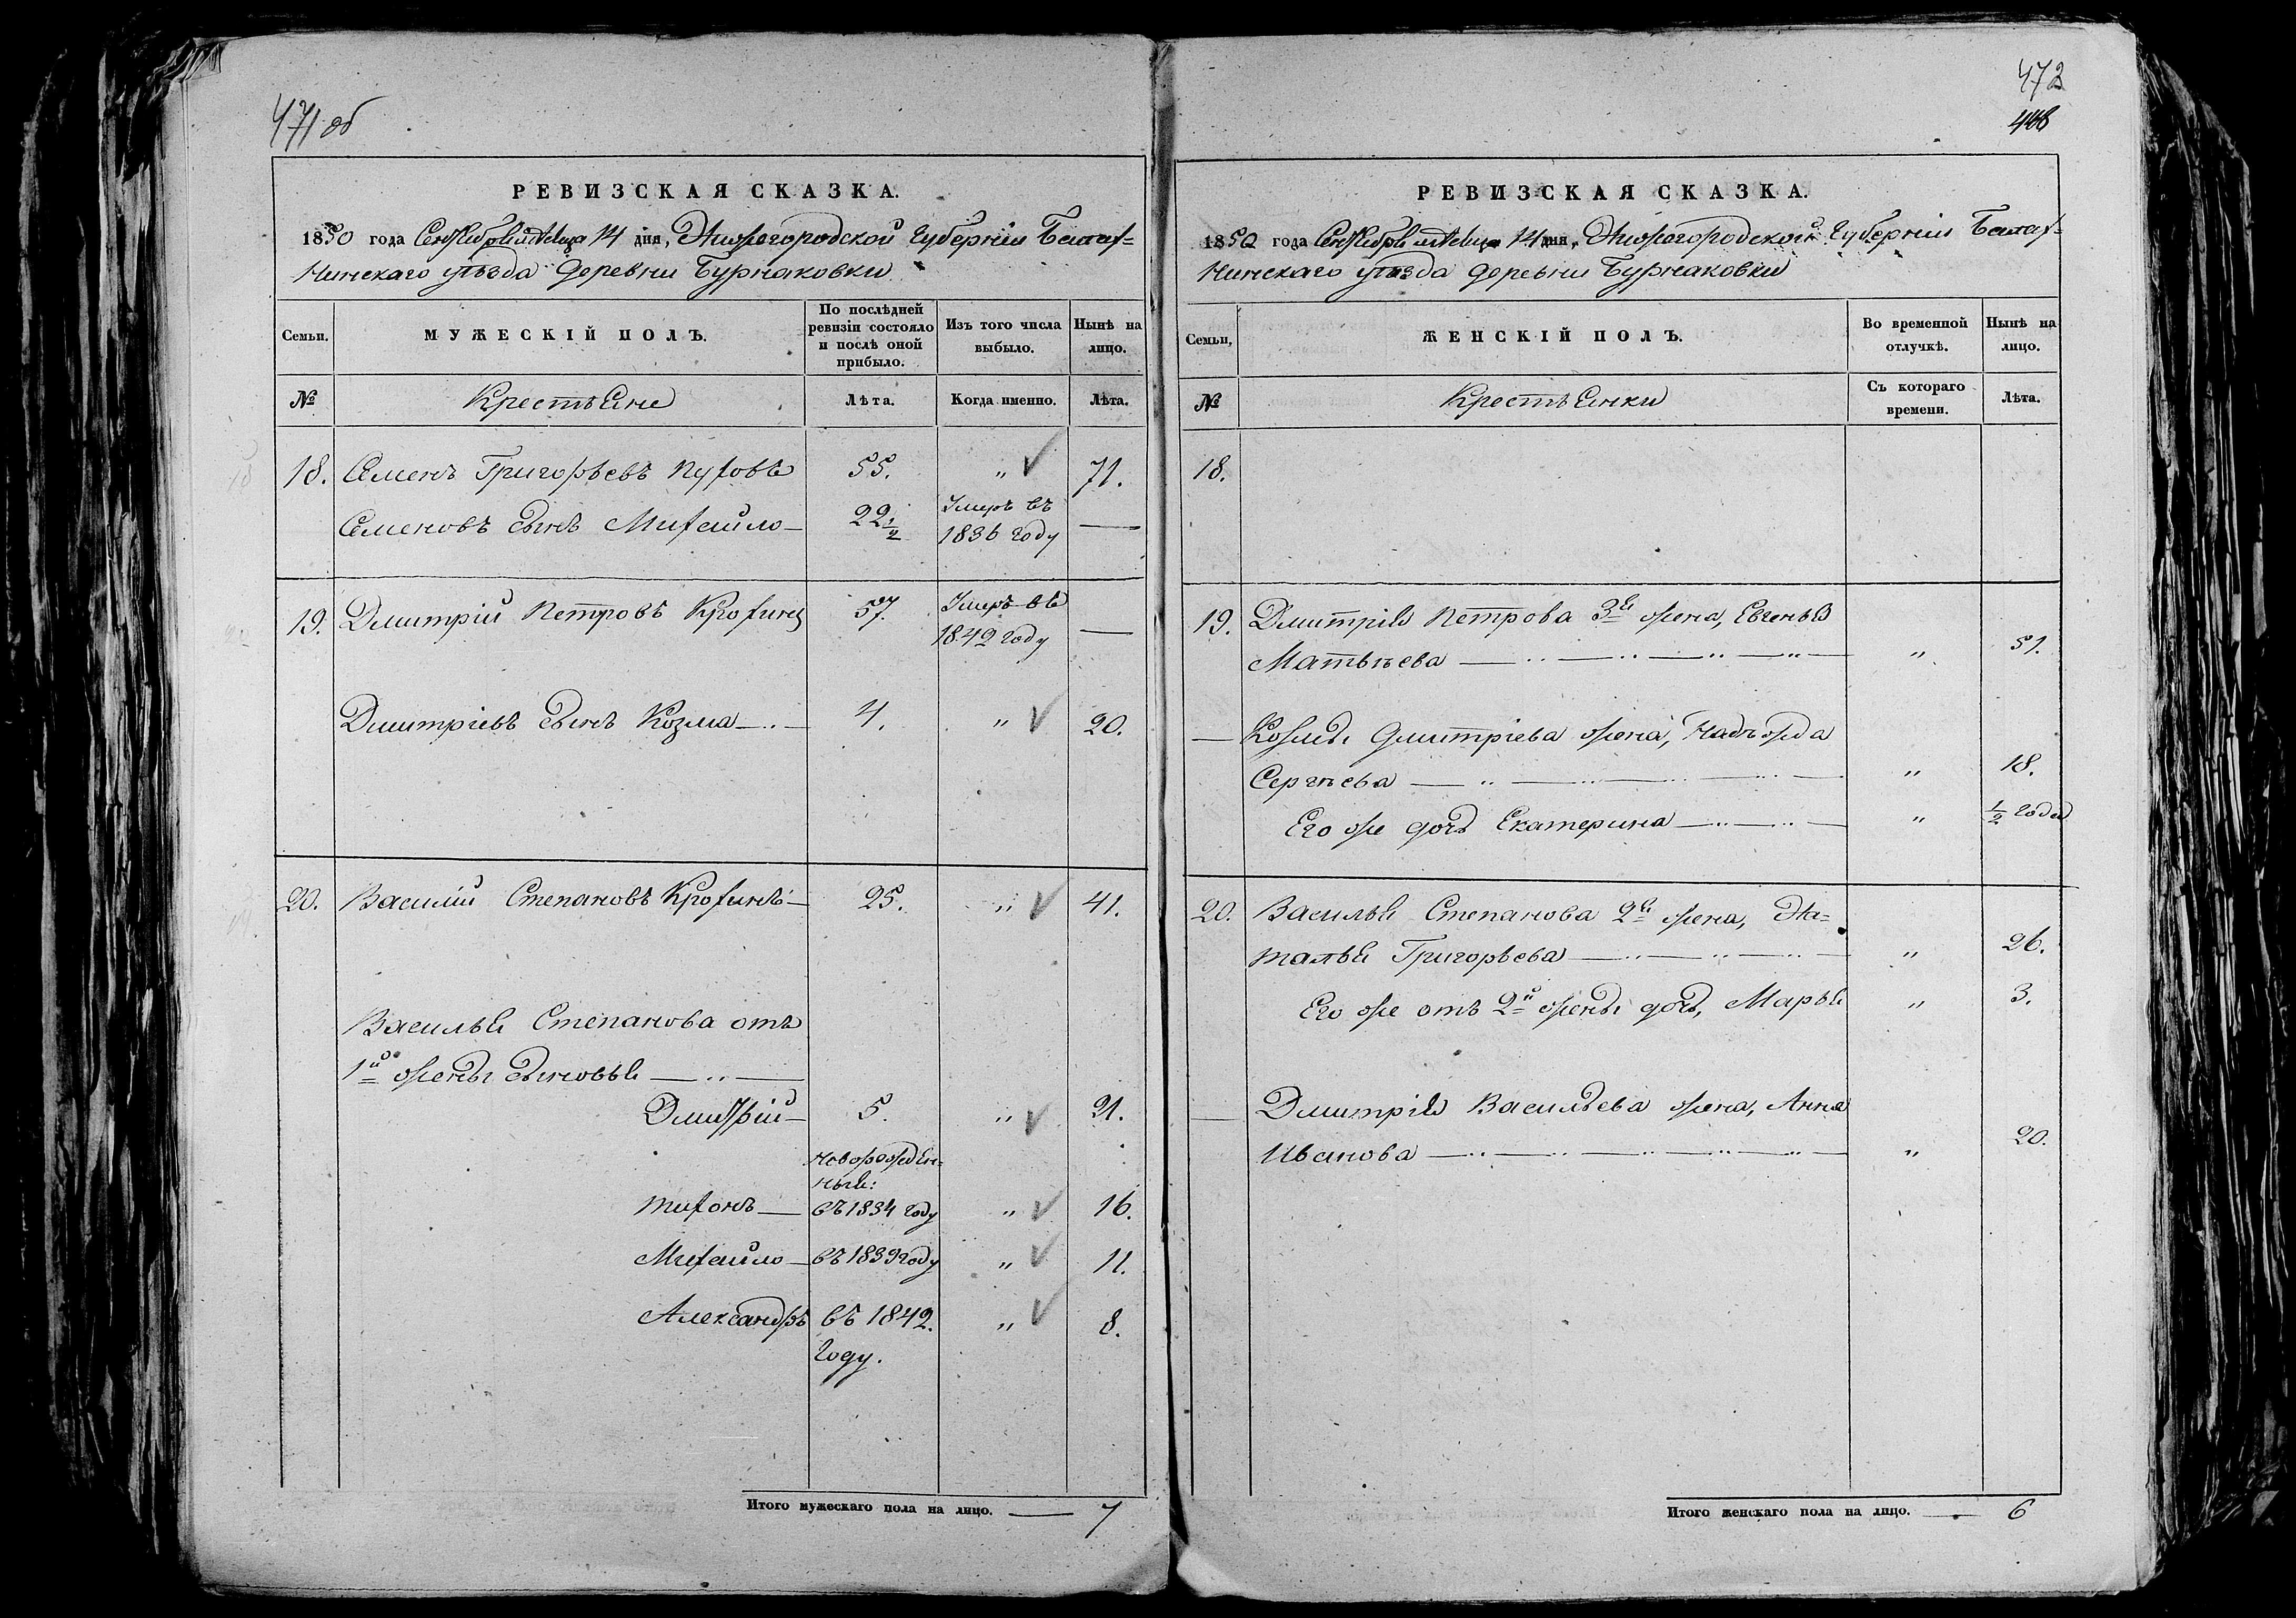 471 об
РЕВИЗСКАЯ СКАЗКА.
1850 года Сентября месяца 14 дня, Нижегородской губерніи Балах=
нинскаго уѣзда деревни Бурнаковки
Семьи.
МУЖЕСКІЙ ПОЛЪ.
По послѣдней ревизіи состояло и послѣ оной прибыло.
Изъ того числа выбыло.
Нынѣ на лицо.
№
Крестьяне
Лѣта.
Когда именно.
Лѣта.
18. Семенъ Григорьевъ 55. " 71.
Семеновъ сынъ Михайло 22 1/2 Умеръ въ
1836 году —
19. Дмитрій Петровъ 57. Умеръ въ
1849 году —
Дмитріевъ сынъ Козма 4. " 20.
20. Василій Степановъ 25. " 41.
Василья Степанова отъ
1й жены сыновья
Дмитрій 5. " 21.
Новорожден=
ныя:
Тихонъ въ 1834 году " 16.
Михайло въ 1839 году " 11.
Александръ въ 1842. " 8.
году.
Итого мужескаго пола на лицо. — 7
472
448
РЕВИЗСКАЯ СКАЗКА.
1850 года Сентября месяца 14 дня, Нижегородской Губерніи Балах=
нинскаго уѣзда деревни Бурнаковки
Семьи,
ЖЕНСКІЙ ПОЛЪ.
Во временной отлучкѣ.
Нынѣ на лицо.
№
Крестьянки
Съ котораго времени.
Лѣта.
18.
19. Дмитрія Петрова 3я жена, Евгенья
Матвѣева " 51.
Козмы Дмитріева жена, Надѣжда
Сергѣева " 18.
Его же дочь Екатерина " 1/2 года
20. Василья Степанова 2я жена, На=
талья Григорьева " 26.
Его же отъ 2й жены дочь, Марья " 3.
Дмитрія Васильева жена, Анна
Иванова " 20.
Итого женскаго пола на лицо. — 6